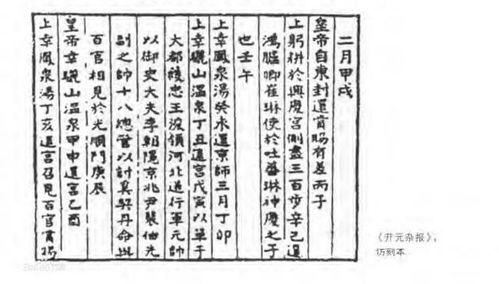 二月甲戌
皇帝自東封還賞賜有差丙子
上躬耕於興慶宮側盡三百步辛己還
鴻臚卿崔琳使於吐蕃琳神慶之子
也壬午
上幸鳳泉湯癸未還京師三月丁卯
上幸驪山溫泉丁丑還宮戊寅以單于
大都護忠王浚領河北道行軍元帥
以御史大夫李朝隱京兆尹裴伷先
副之帥十八總管以討奚契丹命與
百官相見於光順門庚辰
皇帝幸驪山溫泉甲申還宮乙酉
上幸鳳泉湯丁亥還宮召見百官賞
《开元杂报》,
仿刻本